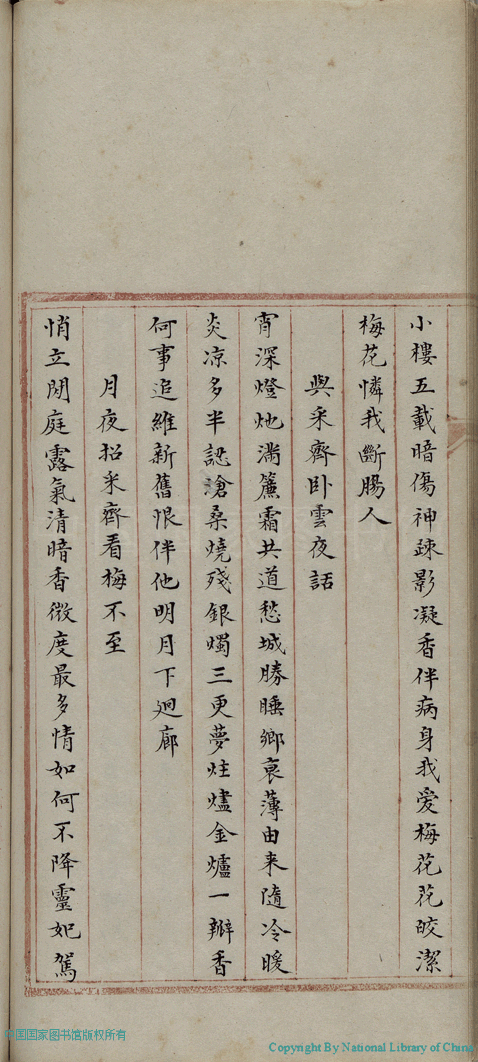 小樓五載暗傷神疎影凝香伴病身我爱梅花花皎潔
梅花憐我斷腸人
與采齊卧雲夜話
宵深燈灺滿簾霜共道愁城勝睡鄉裒薄由来隨冷暖
炎凉多半認滄桑燒殘銀燭三更夢炷燼金爐一瓣香
何事追維新舊恨伴他明月下迴廊
月夜招采齊看梅不至
悄立閒庭露氣清暗香微度最多情如何不降靈妃駕
中国国家图书馆版权所有
Copyright By National Library of China